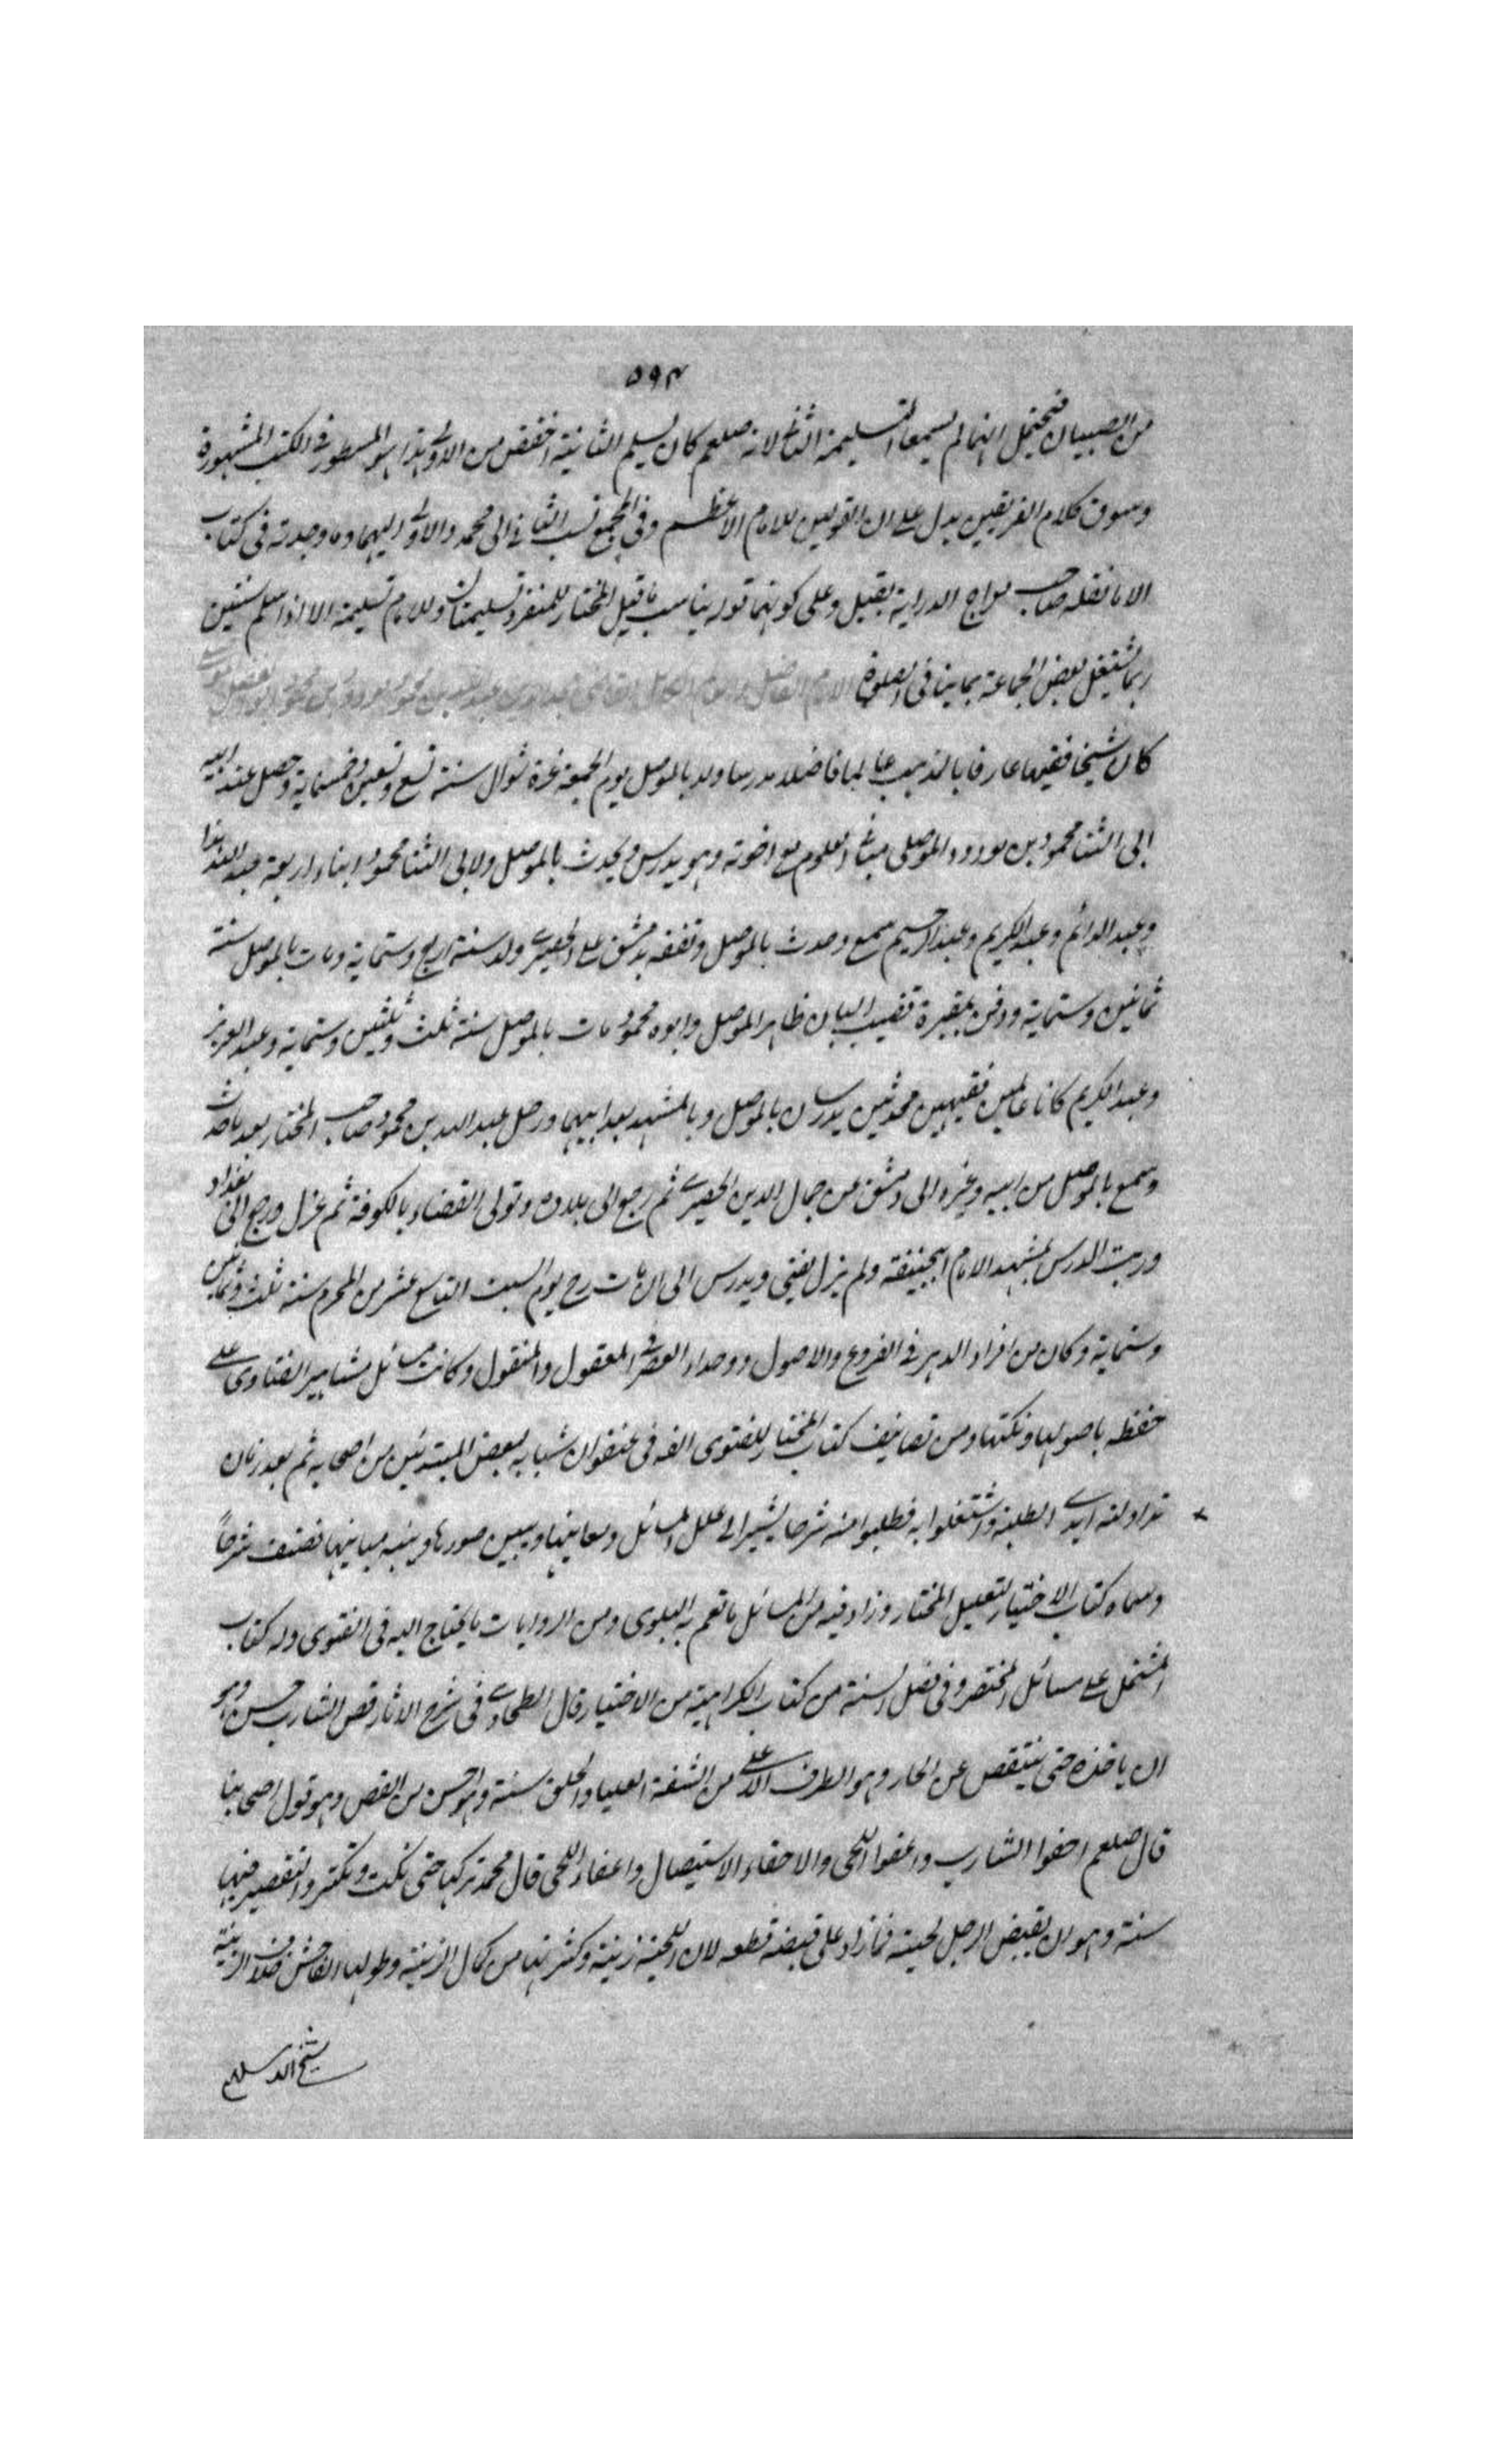 ٥٩٤
من الصبيان فيحتمل انهما لم يسمعا التسليمة الثانية لانه صلعم كان يسلم الثانية اخفض من الاولى هذا هو المسطور في الكتب المشهورة
وسوق كلام الفريقين يدل على ان القولين للامام الاعظم وفي المجمع نسب الثاني الى محمد والاول اليهما وما وجدته في كتاب
الا ما نقله صاحب معراج الدراية بقيل وعلى كونهما قوله يناسب ما قيل المختار للمنفرد تسليمتان وللامام تسليمة الا اذا سلم ثنتين
ربما يشتغل بعض الجماعة بما ينافي الصلوة الامام الفاضل والامام الكامل محمود بن مودود بن محمود ابو الفضل
كان شيخا فقيها عارفا بالمذهب عالما فاضلا مدرسا ولد بالموصل يوم الجمعة غرة شوال سنة تسع وتسعين وخمسماية وحصل عند ابيه
ابي الثنا محمود بن مودود الموصلي مبادي العلوم مع اخوته وهو يدرس ويحدث بالموصل ولابي الثنا محمود ابناء اربعة عبد الله هذا
وعبد الدائم وعبد الكريم وعبد الرحيم سمع وحدث بالموصل وتفقه بدمشق على الحصيري ولد سنة اربع وستماية ومات بالموصل سنة
ثمانين وستماية ودفن بمقبرة قضيب البان ظاهر الموصل وابوه محمود مات بالموصل سنة ثلث وثلثين وستماية وعبد العزيز
وعبد الكريم كانا عالمين فقيهين محدثين يدرسان بالموصل وبالمشهد بعد ابيهما ورحل عبد الله بن محمود صاحب المختار بعد ما حدث
وسمع بالموصل من ابيه وغيره الى دمشق عن جمال الدين الحصيري ثم رجع الى بلاده وتولى القضاء بالكوفة ثم عزل ورجع الى بغداد
ورتب الدرس بمشهد الامام ابي حنيفة ولم يزل يفتي ويدرس الى ان مات رح يوم السبت التاسع عشر من المحرم سنة ثلث وثمانين
وستماية وكان من افراد الدهر في الفروع والاصول ووحداء العصر في المعقول والمنقول وكانت مسائل مشاهير الفتاوى على
حفظه باصولها ونكتها ومن تصانيف كتاب المختار للفتوى الفه في عنفوان شبابه لبعض المبتدئين من اصحابه ثم بعد زمان
تداولته ايدي الطلبة واشتغلوا به فطلبوا منه شرحا يشير الى علل المسائل ومعانيها ويبين صورها وينبه مبانيها فصنف شرحاً
وسماه كتاب الاختيار لتعليل المختار وزاد فيه من المسائل ما تعم به البلوى ومن الروايات ما يحتاج اليه في الفتوى وله كتاب
المشتمل على مسائل المختصر وفي فصل السنة من كتاب الكراهية من الاختيار قال الطحاوي في شرح الاثار قص الشارب حسن وهو
ان ياخذه حتى ينتقص عن الاطار وهو الطرف الاعلى من الشفة العليا والحلق سنة وهو احسن من القص وهو قول اصحابنا
قال صلعم احفوا الشارب واعفوا اللحى والاحفاء الاستيصال واعفاء اللحى قال محمد تركها حتى تكث وتكثر والتقصير فيها
سنة وهو ان يقبض الرجل لحيته فما زاد على قبضه قطعه لان اللحية زينة وكثرتها من كمال الزينة وطولها الفاحش خلاف الزينة
شيخ الاسلام